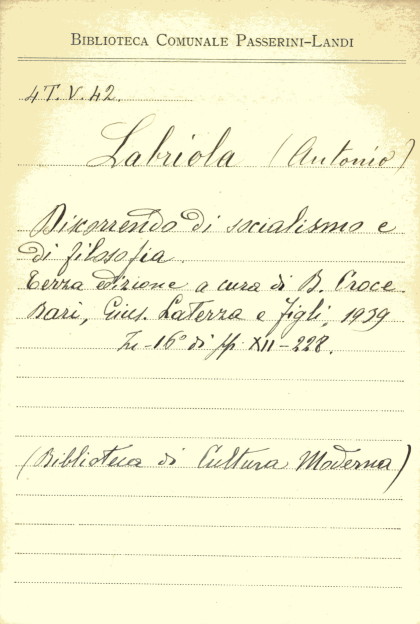 BIBLIOTECA COMUNALE PASSERINI-LANDI
4T. V. 42.
Labriola (Antonio)
Discorrendo di socialismo e
di filosofia.
Terza edizione a cura di B. Croce.
Bari, Gius. Laterza e figli, 1939
In-16° di pp. XII-228.
(Biblioteca di Cultura Moderna)